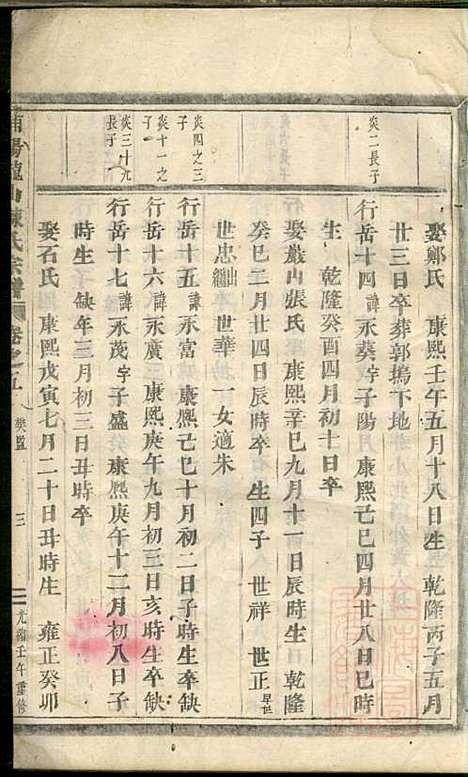 娶鄭氏　康熙壬午五月十八日生　乾隆丙子五月
廿三日卒葬郭塢下地
炎二長子
行岳十四諱永葵字子陽　康熙己巳四月廿八日巳時
生　乾隆癸酉四月初十日卒
娶嚴山張氏　康熙辛巳九月十一日辰時生　乾隆
癸巳二月廿四日辰時卒　生四子　世祥　世正早世
世忠出繼　世華　一女適朱
炎四之三子
行岳十五諱永富　康熙己巳十月初二日子時生卒缺
炎十一之子
行岳十六諱永廣　康熙庚午九月初三日亥時生卒缺
炎三十九長子
行岳十七諱永茂字子盛　康熙庚午十二月初八日子
時生　缺年三月初三日丑時卒
娶石氏　康熙戊寅七月二十日丑時生　雍正癸卯
陽龍山陳氏宗譜　卷之五　三　光緒壬午重修